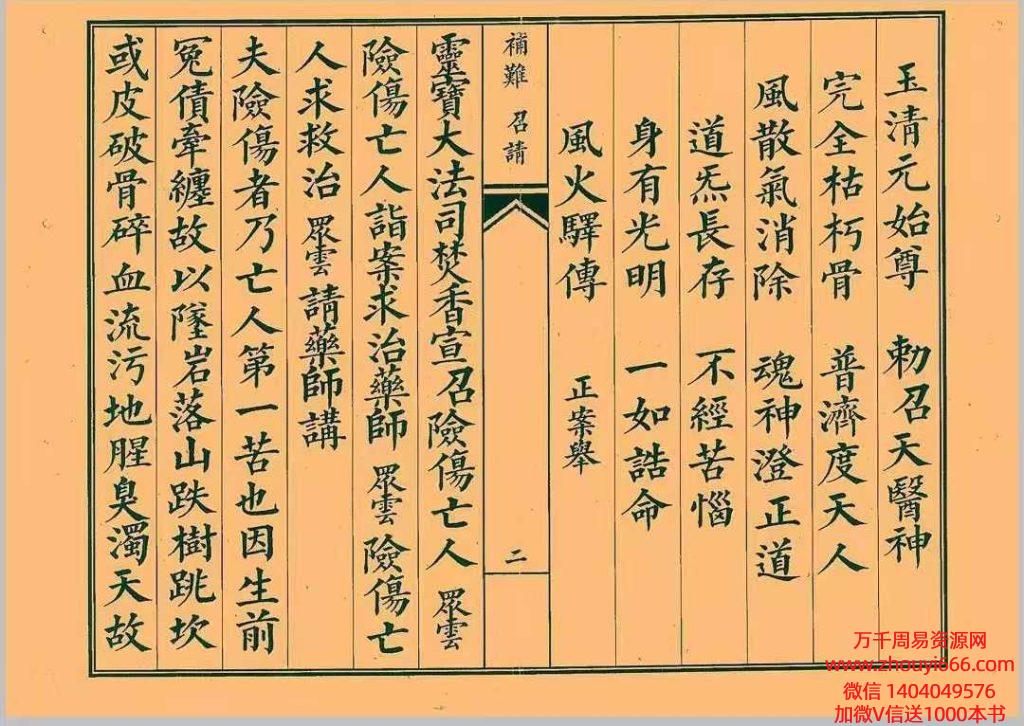 玉清元始尊 勅召天醫神
完全枯朽骨 普濟度天人
風散氣消除 魂神澄正道
道炁長存 不經苦惱
身有光明 一如誥命
風火驛傳 正案舉
補難 召請
二
靈寶大法司焚香宣召險傷亡人 眾雲
險傷亡人詣案求治藥師 眾雲 險傷亡
人求救治 眾雲 請藥師講
夫險傷者乃亡人第一苦也因生前
冤債牽纏故以墜岩落山跌樹跳坎
或皮破骨碎血流污地腥臭濁天故
万千周易资源网
www.zhouyi666.com
微信 1404049576
加微V信送1000本书